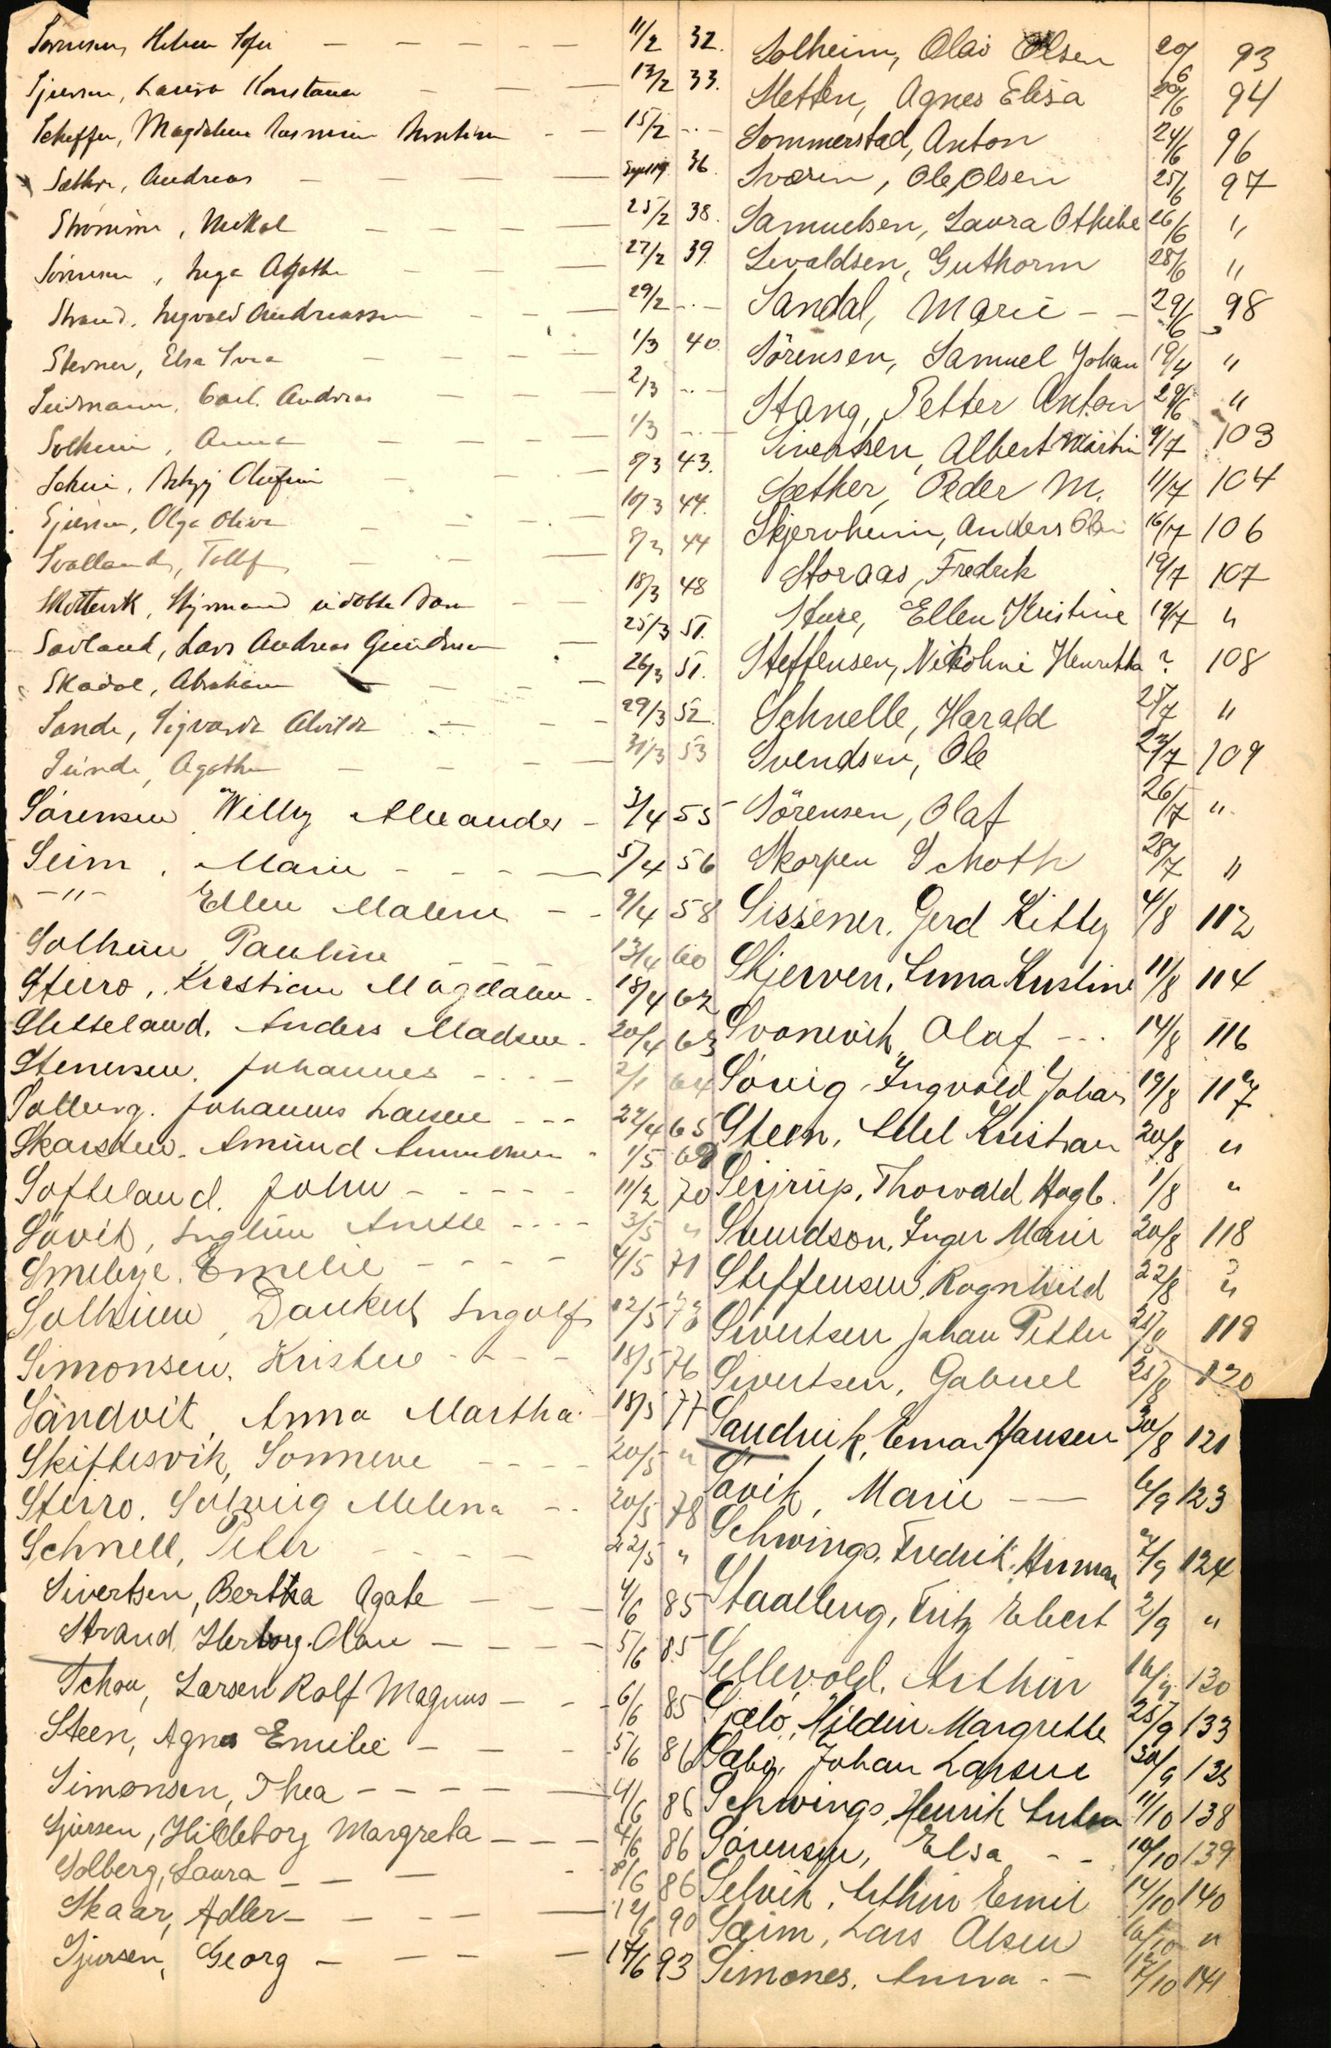 Sørensen, Helene Sofie — — — — — 11/2 32.
Sjursen, Laura Konstance - - - 12/2 33.
Scheffer, Magdalene - - 15/2 - . -
Sæthre, Andreas — — — — 36.
Strømme, Mikal - - - 25/2 38.
Sørensen, Inga Agathe - - - 27/2 39.
Strand, Ingvald Andreassen - - - 29/2 - . -
Sterner, Elsa - - - 1/3 40.
Carl Andreas - - - 2/3 - . -
Solheim, Anna - - - 1/3 - . -
8/3 43.
Sjursen, Olga Olivia - - - 10/3 44.
Svalland, - - - 44
18/3 48
Lars Andreas Gundersen - 25/3 51.
Abraham - - - 26/3 51.
Sande, Sigvarda Alvilda - - - 29/3 52.
Sunde, Agathe - - - 31/3 53
Sørensen Willy Alexander - 3/4 55
Seim, Marie - - - — 5/4 56
-"- Ellen Malene - - 9/4 58
Solheim Pauline - - - 13/4 60
Steiro, Kristiane Magdalene - 18/4 62
Anders Madsen - 20/4 63
Stenersen, Johannes - - - - 64
Solberg, Johannes Larsen - - - 27/4 65
Skarsten, Amund - 1/5
Softeland, John - - - - - 11/2 70
Søvik, Anette - - - - 3/5 "
Emelie - - - - 4/5 71
Solheim, Dankert Ingolf 12/5 73
Simonsen, Kristine - - - - 18/5 76
Sandvik, Anna Martha - 18/5 77
Skiftesvik, Sonneve - - - - 20/5 "
Steiro, Solveig Melena - - 20/5 78
Schnell, Peter - - - - 22/5 "
Sivertsen, Bertha Agate - - - 4/6 85
Strand, Herborg Olau - - - - 5/6 85
Schou, Larsen Rolf Magnus - - 6/6 85
Steen, Agnes Emilie - - - 5/6 86
Simonsen, Thea - - - - - 4/6 86
Sjursen, Hildeborg Margreta - - - 4/6 86
Solberg, Laura - - - - 8/6 86
Skaar, Adler - - - - 12/6 90
Sjursen, Georg - - - - - 17/6 93
Solheim, Olai Olsen 20/6 93
Sletten, Agnes Elisa 20/6 94
Sommerstad, Anton 24/6 96
Sværen, Ole Olsen 25/6 97
Samuelsen, Laura Othilie 26/6 "
Sevaldsen, Guthorm 28/6 "
Sandal, Marie - - 29/6 98
Sörensen, Samuel Johan 19/4 "
Stang, Petter Anton 29/6 "
Sivertsen, Albert Martin 9/7 103
Sæther, Peder M. 11/7 104
Skjervheim, Anders Olai 16/7 106
Storaas, Fredrik 19/7 107
Sture, Ellen Kristine 19/7 "
Steffensen, Nikoline Henrikka ? 108
Schnelle, Harald 25/7 "
Svendsen, Ole 23/7 109
Sörensen, Olaf 26/7 "
Skorpen 28/7 "
Sissener, Gerd Kitty 4/8 112
Skjerven, Anna Kristine 11/8 114
Svanevik Olaf - - - 14/8 116
Søvig, Ingvald Johan 19/8 117
Steen, Adel Kristian 20/8 "
Sejrup, Thorvald Hagb. 1/8 "
Svendson, Inger Marie 20/8 118
Steffensen, Ragnhild 22/8 "
Sivertsen Johan Petter 119
Sivertsen, Gabriel 25/8 120
Sandvik, Einar Hansen 30/8 121
Søvik, Marie - — 6/9 123
Schwings, Fredrik Herman 124
Staalberg, Fritz Ebert 2/9 "
Sellevold, Arthur 16/9 130
Sjølø, Hildur Margrethe 25/9 133
Sæbø, Johan Larsen 30/9 135
Schwings, Henrik Anton 11/10 138
Sørensen, Elsa - - 10/10 139
Selvik, Arthur Emil 14/10 140
Sæim, Lars Olsen 16/10 "
Simones, Anna - - 17/10 141